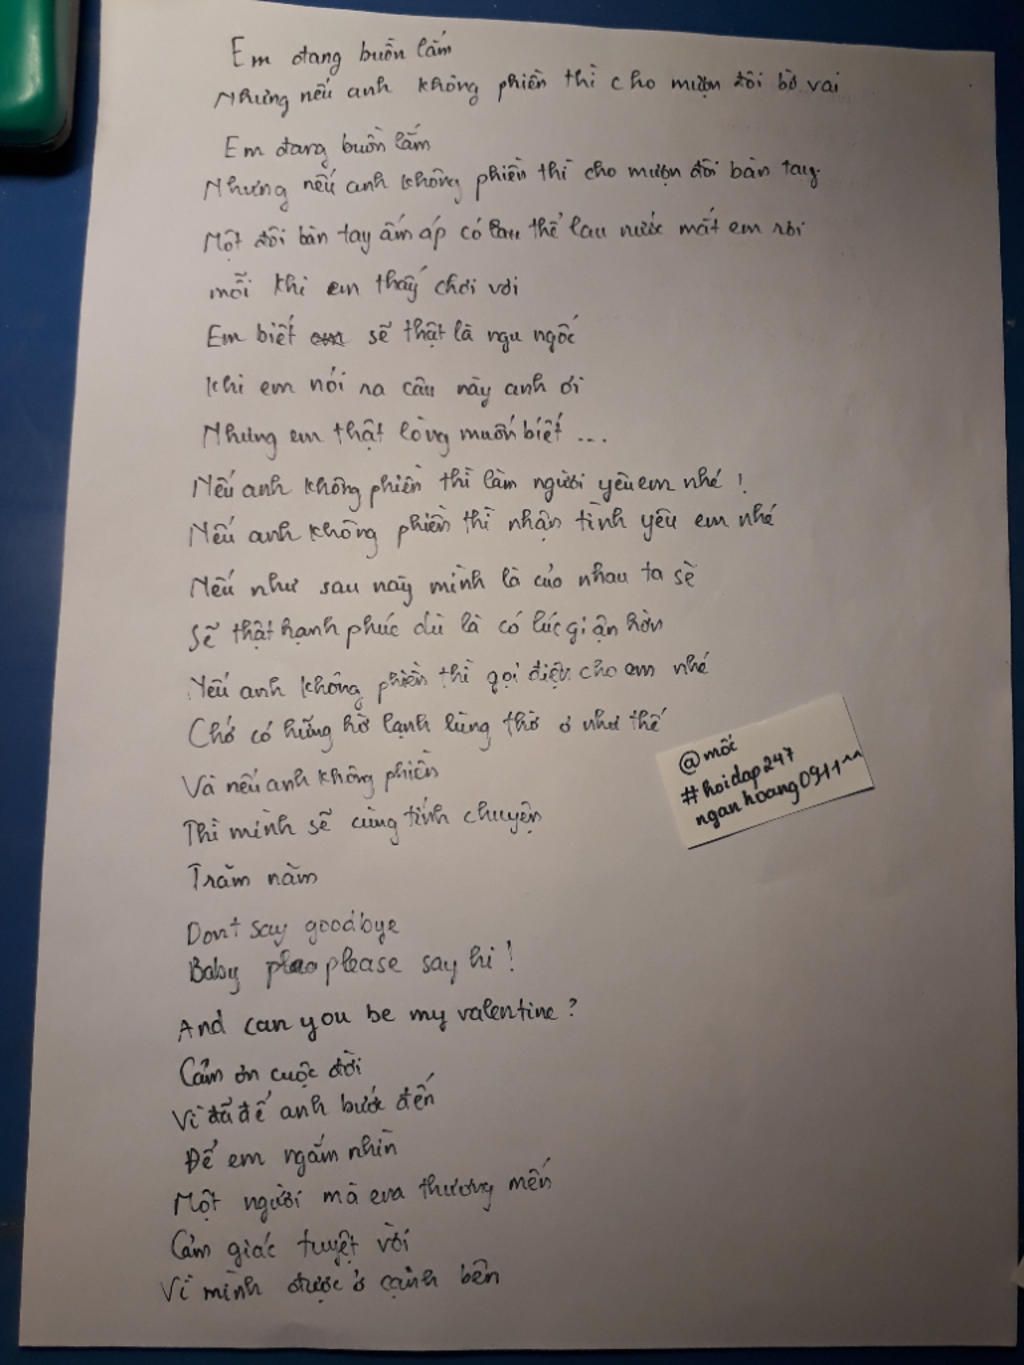 Em đang buồn lắm
Nhưng nếu anh không phiền thì cho mượn đôi bờ vai
Em đang buồn lắm
Nhưng nếu anh không phiền thì cho mượn đôi bàn tay
Một đôi bàn tay ấm áp có thể lau nước mắt em rơi
mỗi khi em thấy chơi vơi
Em biết sẽ thật là ngu ngốc
Khi em nói ra câu này anh ơi
Nhưng em thật lòng muốn biết ...
Nếu anh không phiền thì làm người yêu em nhé !
Nếu anh không phiền thì nhận tình yêu em nhé
Nếu như sau này mình là của nhau ta sẽ
Sẽ thật hạnh phúc dù là có lúc giận hờn
Nếu anh không phiền thì gọi điện cho em nhé
Chớ có hững hờ lạnh lùng thờ ơ như thế
Và nếu anh không phiền
Thì mình sẽ cùng tính chuyện
Trăm năm
Don't say goodbye
Baby please say hi !
And can you be my valentine ?
Cảm ơn cuộc đời
Vì đã để anh bước đến
Để em ngắm nhìn
Một người mà em thương mến
Cảm giác tuyệt vời
Vì mình được ở cạnh bên
@mốc
#hoidap247
nganhoang0911^^